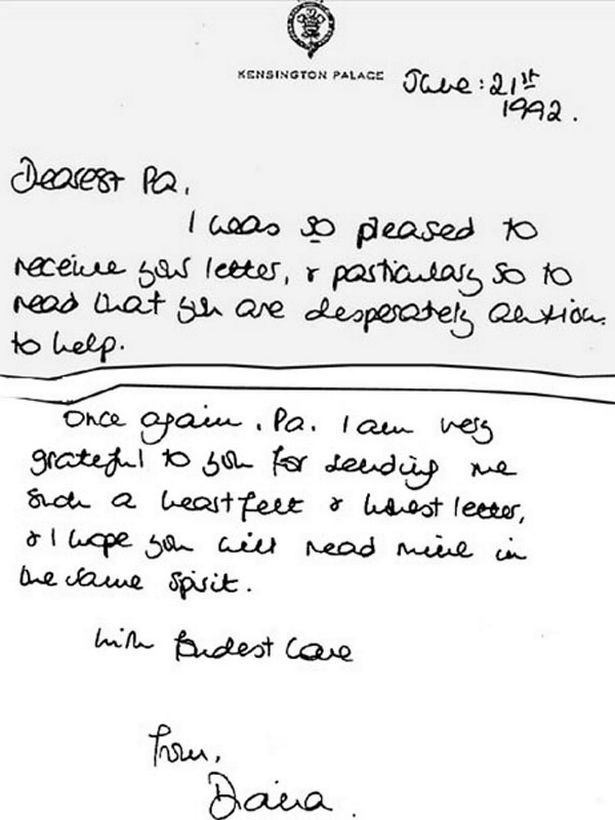 KENSINGTON PALACE
June: 21st
1992.
Dearest Pa,
I was so pleased to
receive your letter, & particulary so to
read that you are desperately anxious
to help.
Once again, Pa. I am very
grateful to you for sending me
such a heartfelt & honest letter,
& I hope you will read mine in
the same spirit.
with fondest love
from,
Diana.